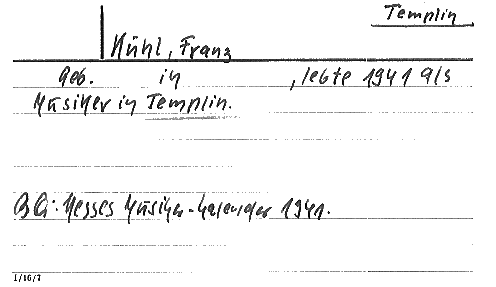 Templin
Franz
Geb. in , lebte 1941 als
Musiker in Templin.
Hesses Musiker-Kalender 1941.
I/16/7